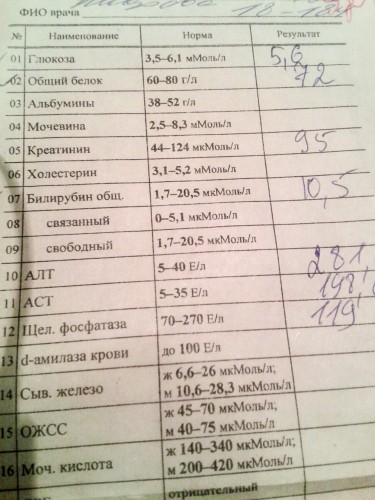 ФИО врача
№ Наименование Норма Результат
01 Глюкоза 3,5–6,1 мМоль/л 5,6
02 Общий белок 60–80 г/л 72
03 Альбумины 38–52 г/л
04 Мочевина 2,5–8,3 мМоль/л
05 Креатинин 44–124 мкМоль/л 95
06 Холестерин 3,1–5,2 мМоль/л
07 Билирубин общ. 1,7–20,5 мкМоль/л 10,5
08 связанный 0–5,1 мкМоль/л
09 свободный 1,7–20,5 мкМоль/л
10 АЛТ 5–40 Е/л 281
11 АСТ 5–35 Е/л 198,
12 Щел. фосфатаза 70–270 Е/л 119
13 d-амилаза крови до 100 Е/л
14 Сыв. железо ж 6,6–26 мкМоль/л;
м 10,6–28,3 мкМоль/л
15 ОЖСС ж 45–70 мкМоль/л;
м 40–75 мкМоль/л
16 Моч. кислота ж 140–340 мкМоль/л;
м 200–420 мкМоль/л
отрицательный